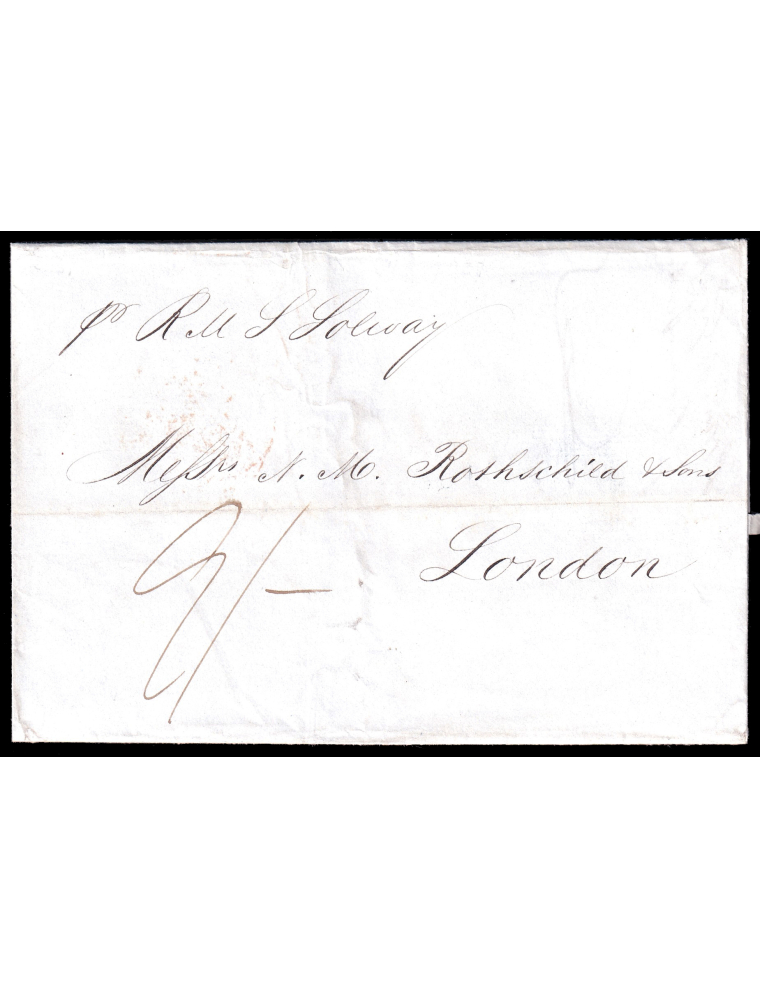 pr R M S Solway
Messrs N. M. Rothschild & Sons
London
9/–